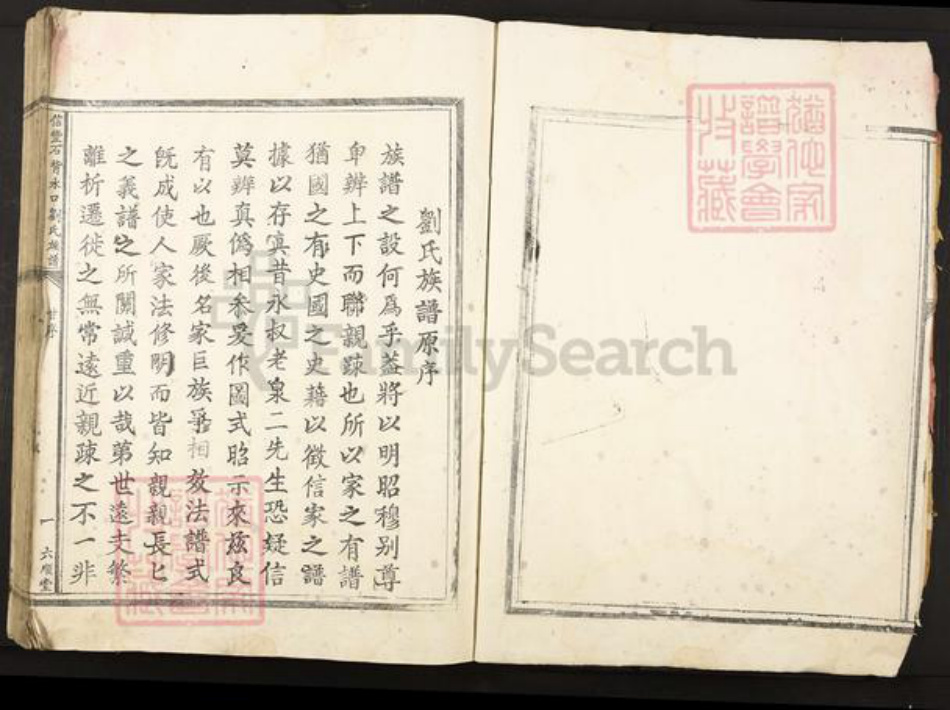 劉氏族譜原序
族譜之設何爲乎葢將以明昭穆别尊
卑辨上下而聯親踈也所以家之有譜
猶國之有史國之史藉以徵信家之譜
據以存寘昔永叔老泉二先生恐疑信
莫辨真僞相叅爰作圖式昭示來兹良
有以也厥後名家巨族爭相效法譜式
旣成使人家法修明而皆知親親長匕
之義譜之所關誠重以哉第世遠支繁
離析遷徙之無常遠近親疎之不一非
石背水口劉氏族譜
序
一
六順堂
譜學會
收藏
FamilySearch